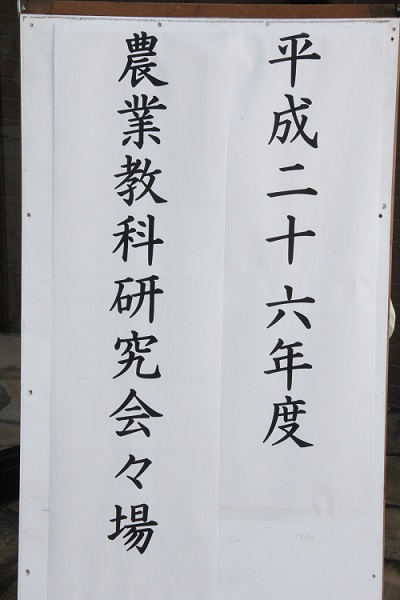 平成二十六年度
農業教科研究会々場